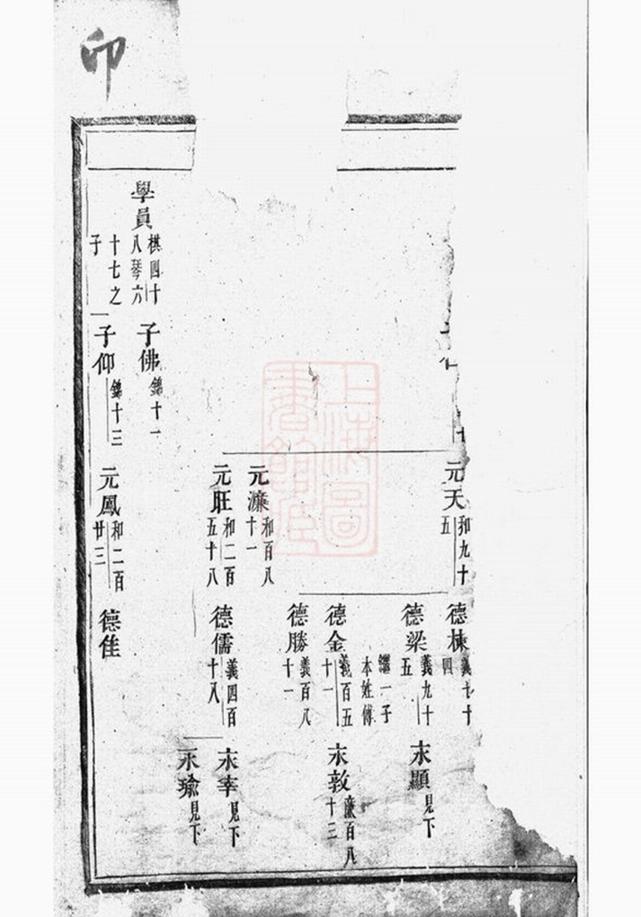 卬
元天 和九十五
德林 義七十四
德梁 義九十五
永顯 見下
繼一子本姓傅
德金 義百五十一
永敦 廉百八十三
德勝 義百八十一
元濂 和百八十一
元旺 和二百五十八
德儒 義四百十八
永幸 見下
永瑜 見下
學員 棋四十八琴六十七之子
子佛 錦十一
子仰 錦十三
元鳳 和二百廿三
德隹
上海圖書館藏